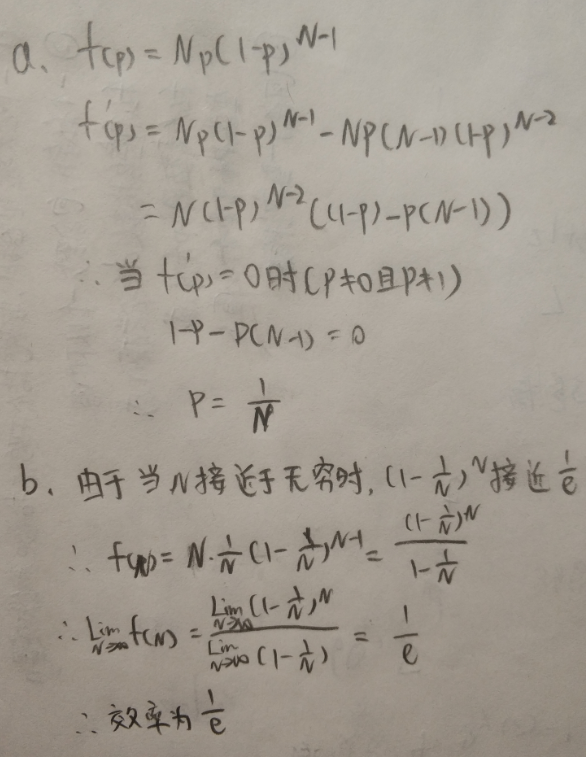 a. f(p) = Np(1-p)^{N-1}
f'(p) = Np(1-p)^{N-1} - NP(N-1)(1-p)^{N-2}
= N(1-p)^{N-2}((1-p)-p(N-1))
∴ 当 f'(p) = 0时(P≠0且P≠1)
1-P-P(N-1) = 0
∴ P = 1/N
b. 由于当N接近于无穷时, (1-1/N)^N接近1/e
∴ f(N) = N·1/N(1-1/N)^{N-1} = (1-1/N)^N / (1-1/N)
∴ Lim_{N→∞} f(N) = Lim_{N→∞}(1-1/N)^N / Lim_{N→∞}(1-1/N) = 1/e
∴ 效率为1/e